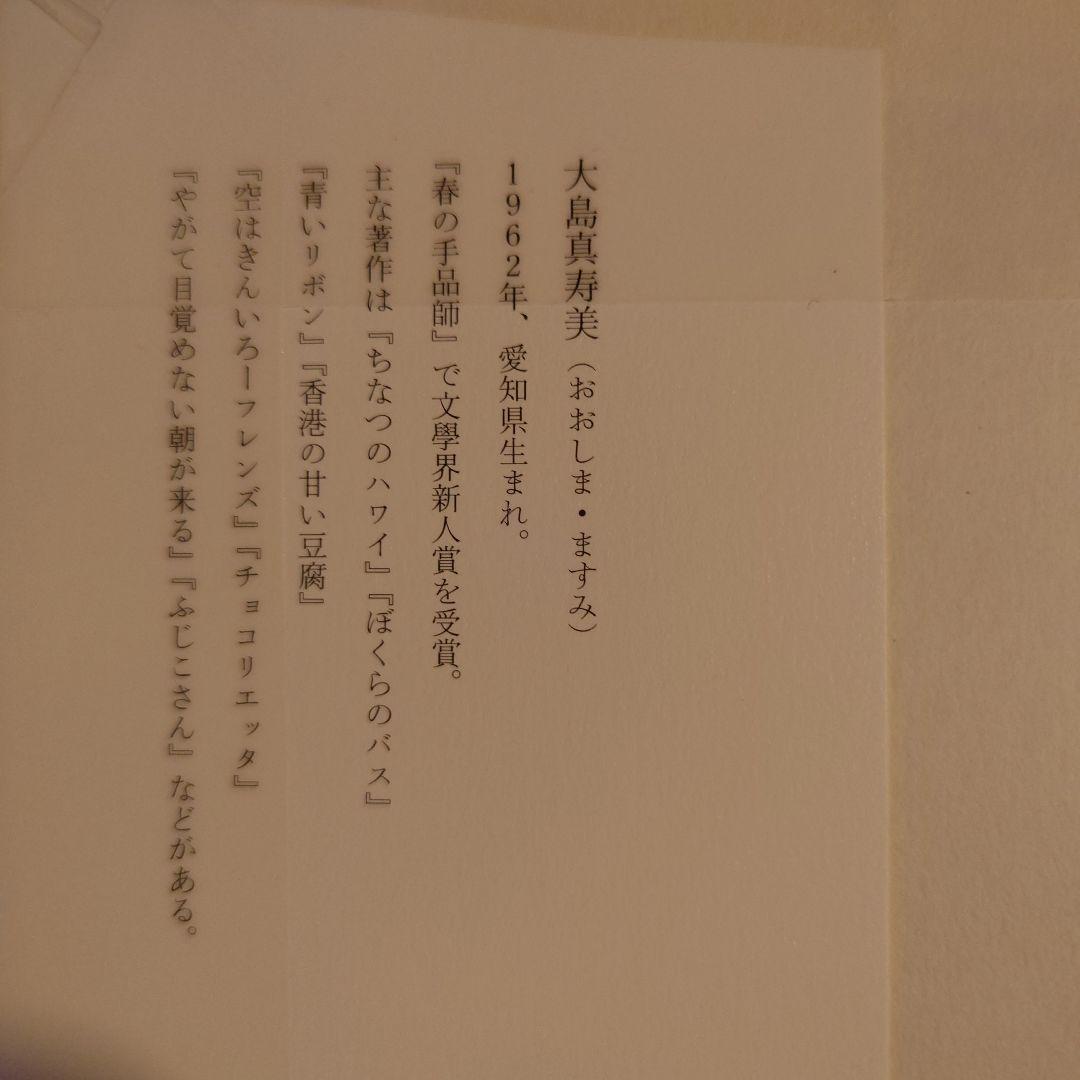 大島真寿美（おおしま・ますみ）
1962年、愛知県生まれ。
『春の手品師』で文學界新人賞を受賞。
主な著作は『ちなつのハワイ』『ぼくらのバス』
『青いリボン』『香港の甘い豆腐』
『空はきんいろーフレンズ』『チョコリエッタ』
『やがて目覚めない朝が来る』『ふじこさん』などがある。